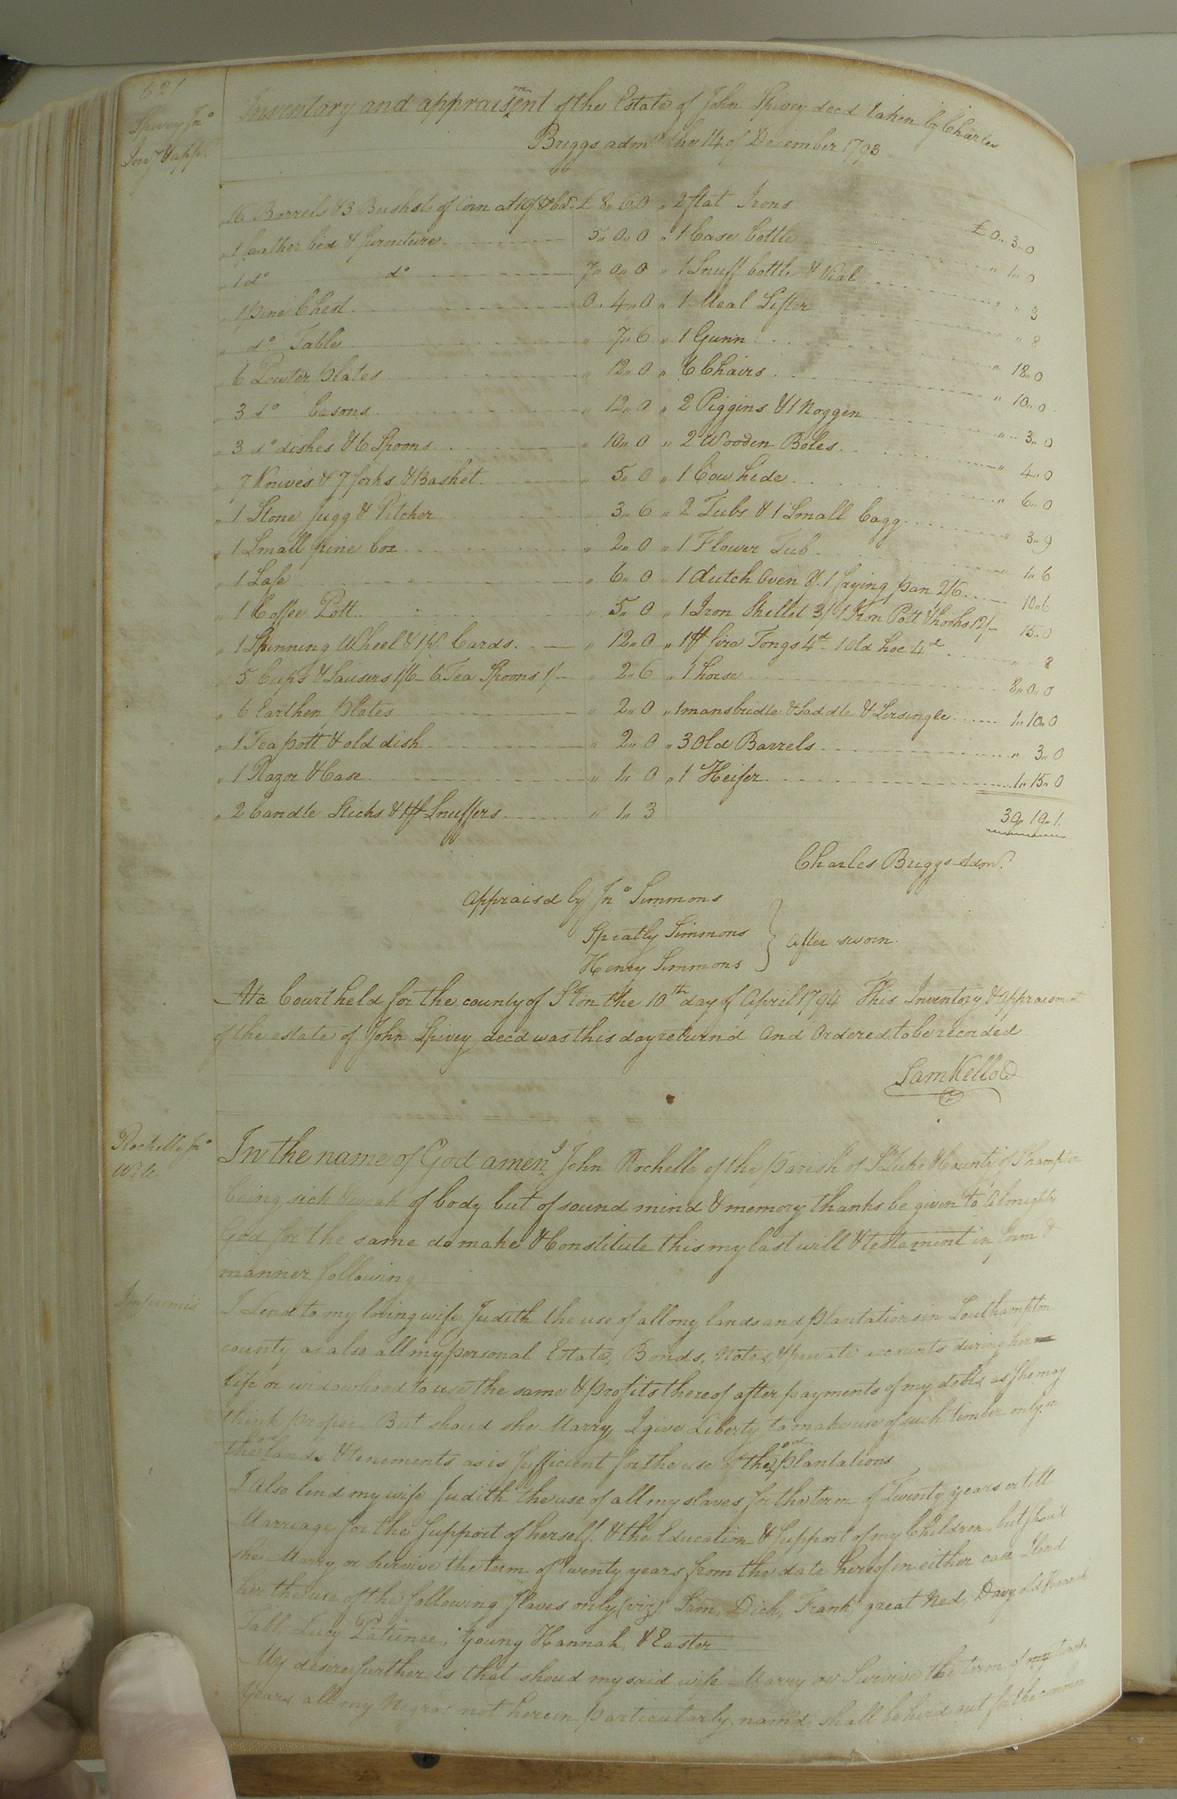 621
Spivey Jno
Invy & app.
Inventory and appraisment of the Estate of John Spivey decd taken by Charles
Briggs admr the 14 of December 1793
16 Barrels & 3 Bushels of Corn at 10/ £ 8 „ 6 „ 0 „ 2 flat Irons £ 0 „ 3 „ 0
„ 1 feather bed & furniture 5 „ 0 „ 0 „ 1 Case bottle „ 1 „ 0
„ 1 do do 7 „ 0 „ 0 „ 1 Snuff bottle & Vial „ „ 3
„ 1 pine Chest 0 „ 4 „ 0 „ 1 Meal Sifter „ „ 8
„ do Table 7 „ 6 „ 1 Gunn „ 18 „ 0
„ 6 Pewter plates „ 12 „ 0 „ 6 Chairs „ 10 „ 0
„ 3 do basons „ 12 „ 0 „ 2 Piggins & 1 Noggen „ 3 „ 0
„ 3 do dishes & 6 Spoons „ 10 „ 0 „ 2 Wooden Boles 4 „ 0
„ 7 Knives & 7 forks & Basket „ 5 „ 0 „ 1 Cow hide „ 6 „ 0
„ 1 Stone Jugg & Pitcher „ 3 „ 6 „ 2 Tubs & 1 Small Cagg 3 „ 9
„ 1 Small pine box „ 2 „ 0 „ 1 Flower Tub 1 „ 6
„ 1 Safe „ 6 „ 0 „ 1 dutch Oven & 1 frying pan 2/6 10 „ 6
„ 1 Coffee Pott „ 5 „ 0 „ 1 Iron Skillet 3/ 1 Iron Pott & hooks 12/- 15 „ 0
„ 1 Spinning Wheel & 1 pr Cards „ 12 „ 0 „ 1 pr fire Tongs 4d 1 Old hoe 4d „ 8
„ 5 Cups & Sausers 1/6 6 Tea Spoons 1/- „ 2 „ 6 „ 1 horse 8 „ 0 „ 0
„ 6 Earthen plates „ 2 „ 0 „ 1 mans bridle & Saddle & Sirsingle 1 „ 10 „ 0
„ 1 Tea pott & old dish „ 2 „ 0 „ 3 Old Barrels „ 3 „ 0
„ 1 Razor & Case „ 1 „ 0 „ 1 Heifer 1 „ 15 „ 0
„ 2 Candle Sticks & 1 pr Snuffers „ 1 „ 3 39 „ 19 „ 1
Charles Briggs Admr.
Appraisd by Jno Simmons
Spratly Simmons
Henry Simmons } After sworn.
At a Court held for the county of Soton the 10th day of April 1794 This Inventory & Appraisment
of the estate of John Spivey decd was this day returnd and Ordered to be recorded
Sam Kello
Rochelle Jno
Will
In the name of God amen I John Rochelle of the parish of St Luke & County of Shampton
being sick & weak of body but of sound mind & memory thanks be given to almighty
God for the same do make & Constitute this my last will & testament in form &
manner following
Imprimis
I Lend to my loving wife Judith the use of all my lands and plantations in Southampton
county as also all my personal Estate, Bonds, Notes, & private accounts during her
life or widowhood to use the same & profits thereof after payments of my debts as She may
think proper But shoud she Marry, I give Liberty to make use of such timber only on
the sd lands & tenements as is Sufficient for the use of the sd plantations
I Also lend my wife Judith the use of all my slaves for the term of Twenty years or till
Marriage for the Support of herself & the Education & Support of my Children, but shoud
she Marry or survive the term of twenty years from the date hereof in either case I lend
her the use of the following Slaves only (viz) Sam, Dick, Frank, great Ned, Davy old Hannah
Tabb, Lucy Patience, young Hannah, & Easter
My desire further is that shoud my said wife Marry or Survive the term of twenty
years all my Negros not herein particularly namd, shall be hird out for the common